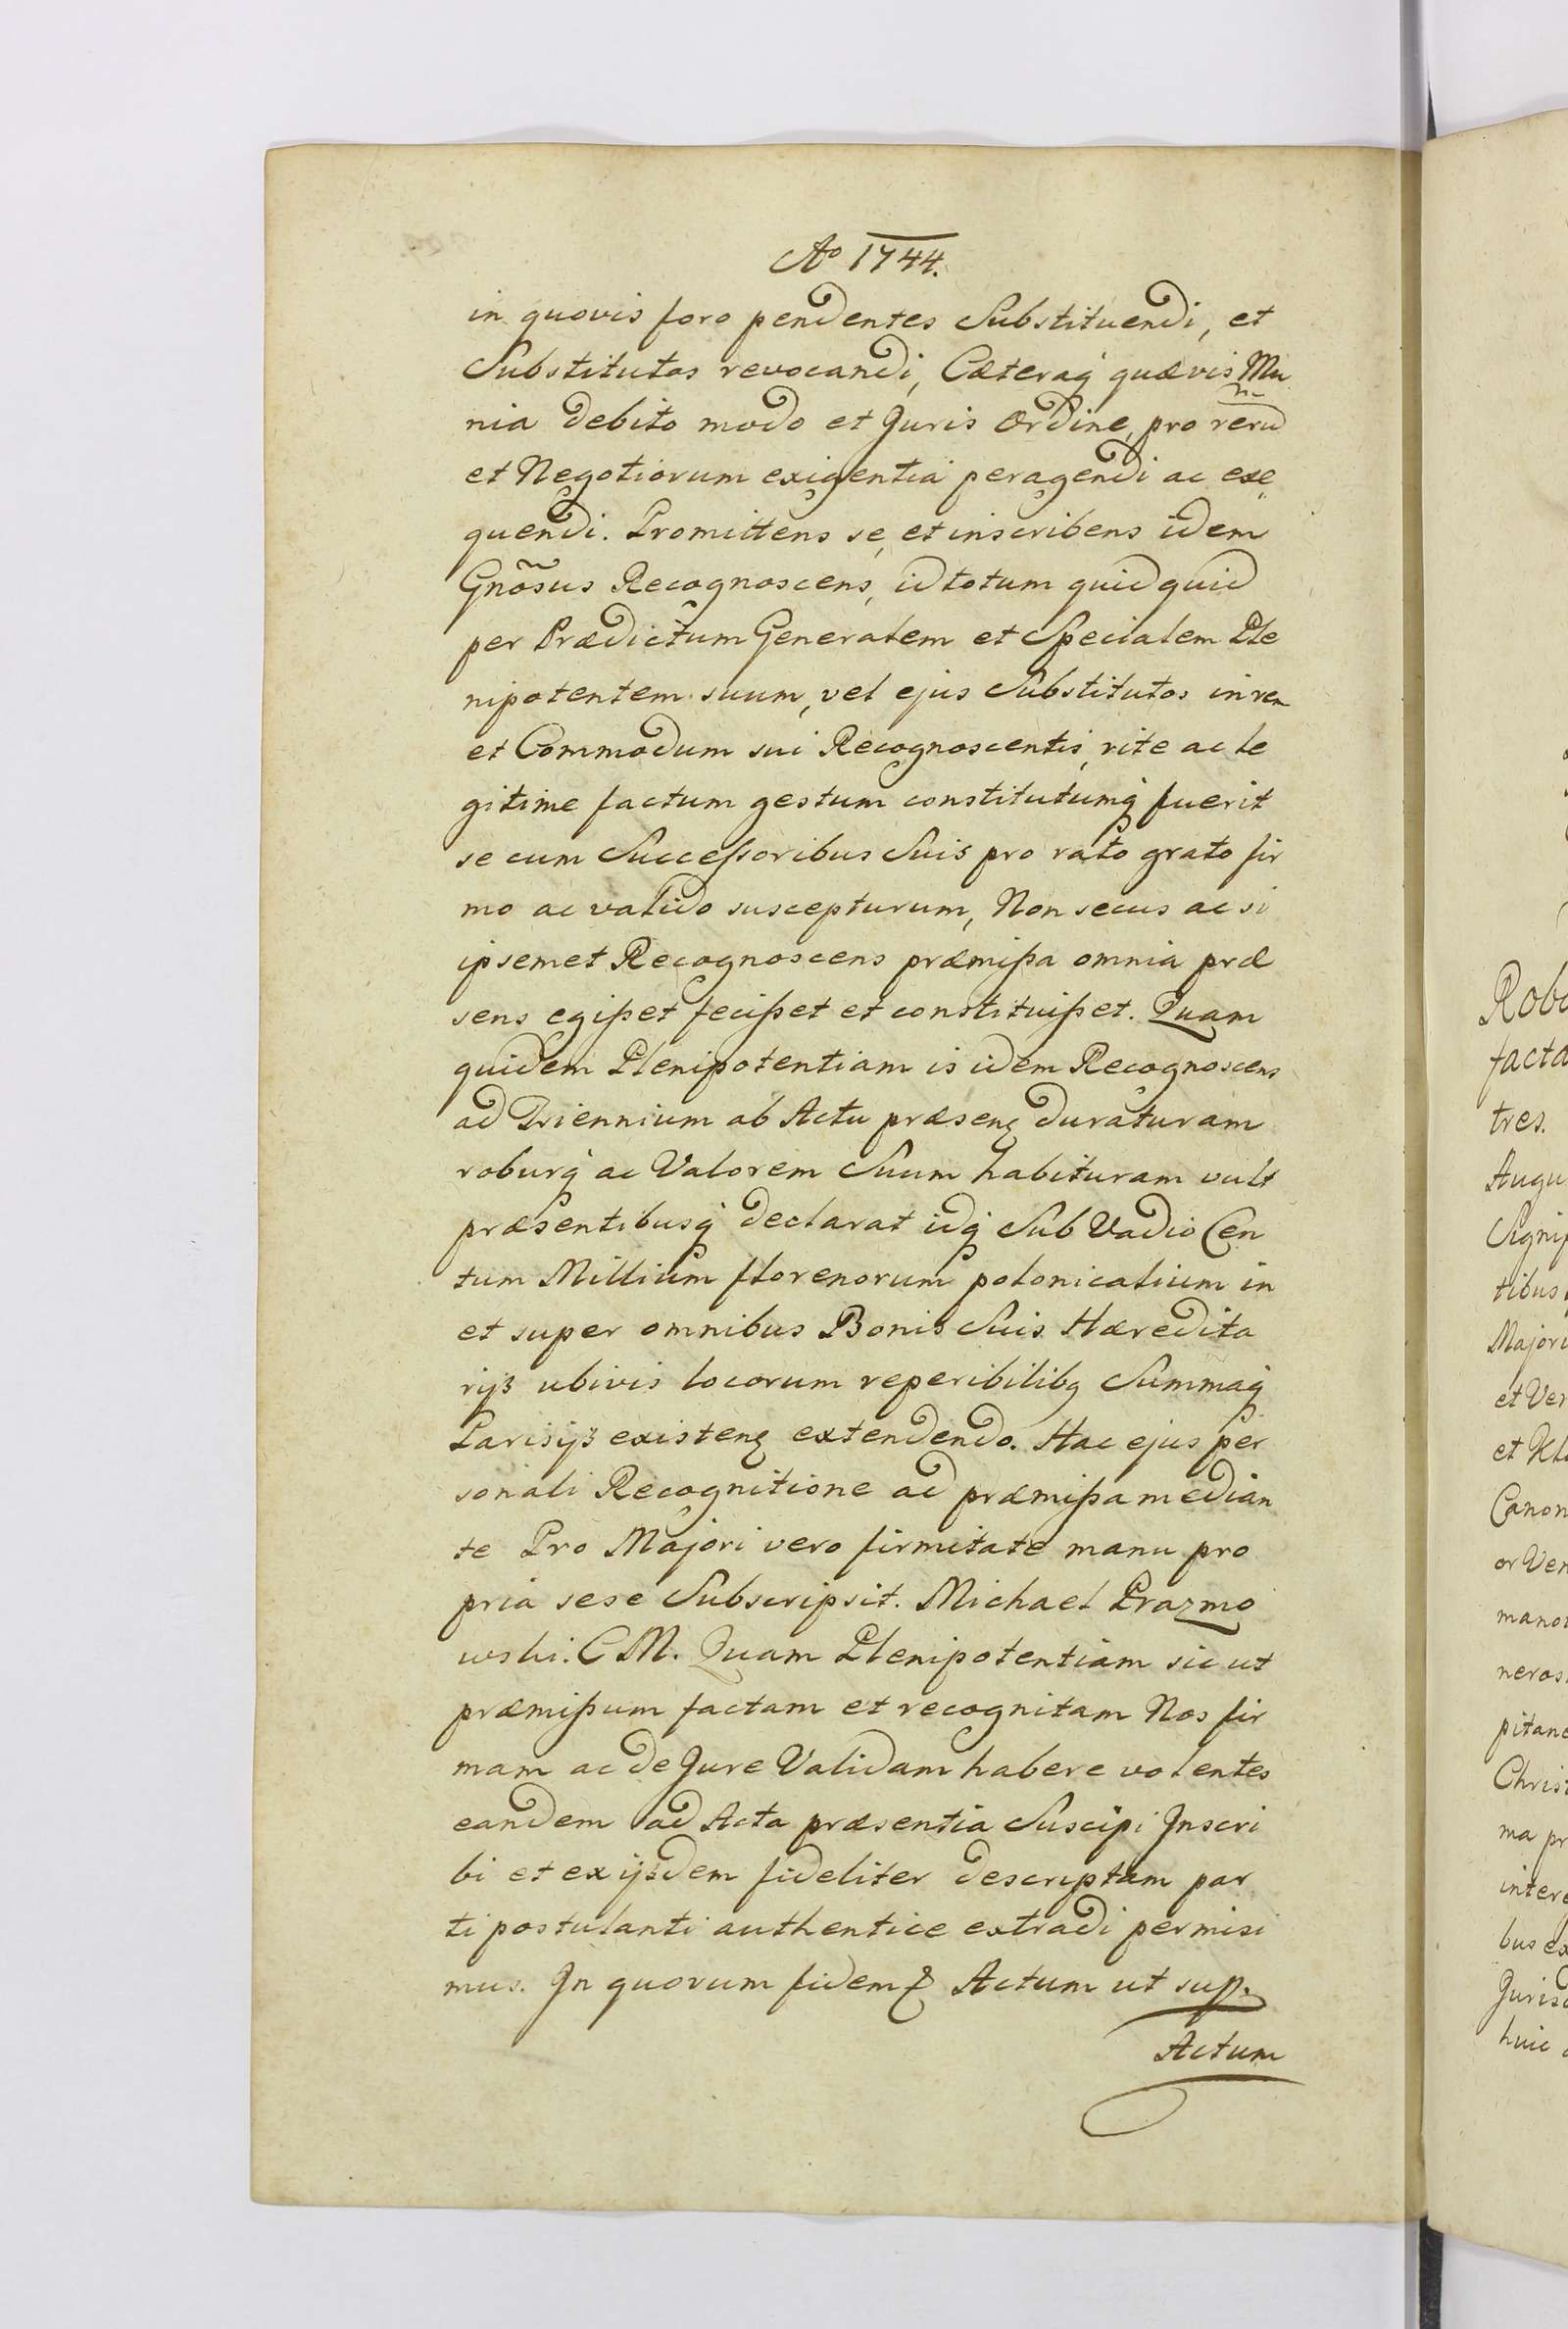 Ao 1744.
in quovis foro pendentes Substituendi, et
Substitutos revocandi, Cæteraq quævis Mu
nia debito modo et Juris Ordine, pro reru
et Negotiorum exigentia peragendi ac exe
quendi. Promittens se, et inscribens idem
Gnõsus Recognoscens, id totum quidquid
per Prædictum Generalem et Specialem Ple
nipotentem suum, vel ejus Substitutos in rem
et Commodum sui Recognoscentis, rite ac le
gitime factum gestum constitutumq fuerit
se cum Successoribus Suis pro rato grato fir
mo ac valido suscepturum, Non secus ac si
ipsemet Recognoscens præmißa omnia præ
sens egißet fecißet et constituißet. Quam
quidem Plenipotentiam is idem Recognoscens
ad Triennium ab Actu præsenz duraturam
roburq ac Valorem Suum habituram vult
præsentibusq declarat idq Sub Vadio Cen
tum Millium florenorum polonicalium in
et super omnibus Bonis Suis Hæredita
rijs ubivis locorum reperibilibq Summaq
Parisijs existenz extendendo. Hac ejus per
sonali Recognitione ad præmißa median
te Pro Majori vero firmitate manu pro
pria sese Subscripsit. Michael Prazmo
wski. C M. Quam Plenipotentiam sic ut
præmißum factam et recognitam Nos fir
mam ac de Jure Validam habere volentes
eandem ad Acta præsentia Suscipi Inscri
bi et ex ijsdem fideliter descriptam par
ti postulanti authentice extradi permisi
mus. In quorum fidem & Actum ut sup.
Actum
Robo
facta
tres.
Augu
Signif
tibus
Majori
et Ver
et Kl
Canon
or Ven
manor
neros
pitane
Christ
ma pr
intere
bus ex
Jurisd
huic